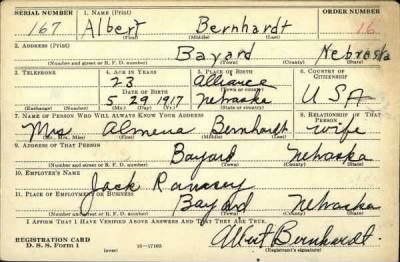 SERIAL NUMBER 1. NAME (Print) ORDER NUMBER
167 Albert Bernhardt 16
(First) (Middle) (Last)
2. ADDRESS (Print)
Bayard Nebraska
(Number and street or R. F. D. number) (Town) (County) (State)
3. TELEPHONE 4. AGE IN YEARS 5. PLACE OF BIRTH 6. COUNTRY OF CITIZENSHIP
23 Alliance
DATE OF BIRTH (Town or county)
5 29 1917 Nebraska USA
(Exchange) (Number) (Mo.) (Day) (Yr.) (State or country)
7. NAME OF PERSON WHO WILL ALWAYS KNOW YOUR ADDRESS 8. RELATIONSHIP OF THAT PERSON
Mrs Almena Bernhardt wife
(Mr., Mrs., Miss) (First) (Middle) (Last)
9. ADDRESS OF THAT PERSON
Bayard Nebraska
(Number and street or R. F. D. number) (Town) (County) (State)
10. EMPLOYER'S NAME
Jack
11. PLACE OF EMPLOYMENT OR BUSINESS
Bayard Nebraska
(Number and street or R. F. D. number) (Town) (County) (State)
I AFFIRM THAT I HAVE VERIFIED ABOVE ANSWERS AND THAT THEY ARE TRUE.
REGISTRATION CARD Albert Bernhardt.
D. S. S. Form 1 (over) 16—17105 (Registrant's signature)